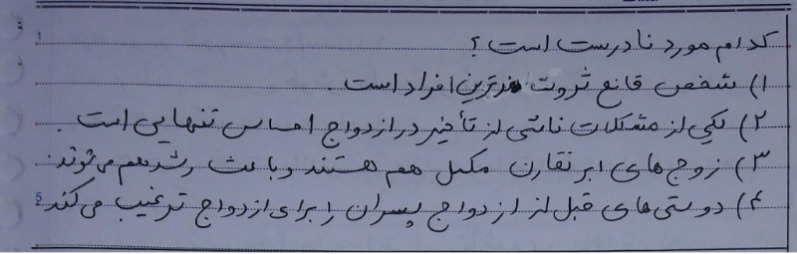 کدام مورد نادرست است؟
۱) شخص قانع ثروت مندترین افراد است.
۲) یکی از مشکلات ناشی از تأخیر در ازدواج احساس تنهایی است.
۳) زوج های ابر تقارن مکمل هم هستند و باعث رشد هم می شوند.
۴) دوستی های قبل از ازدواج پسران را برای ازدواج ترغیب می کند